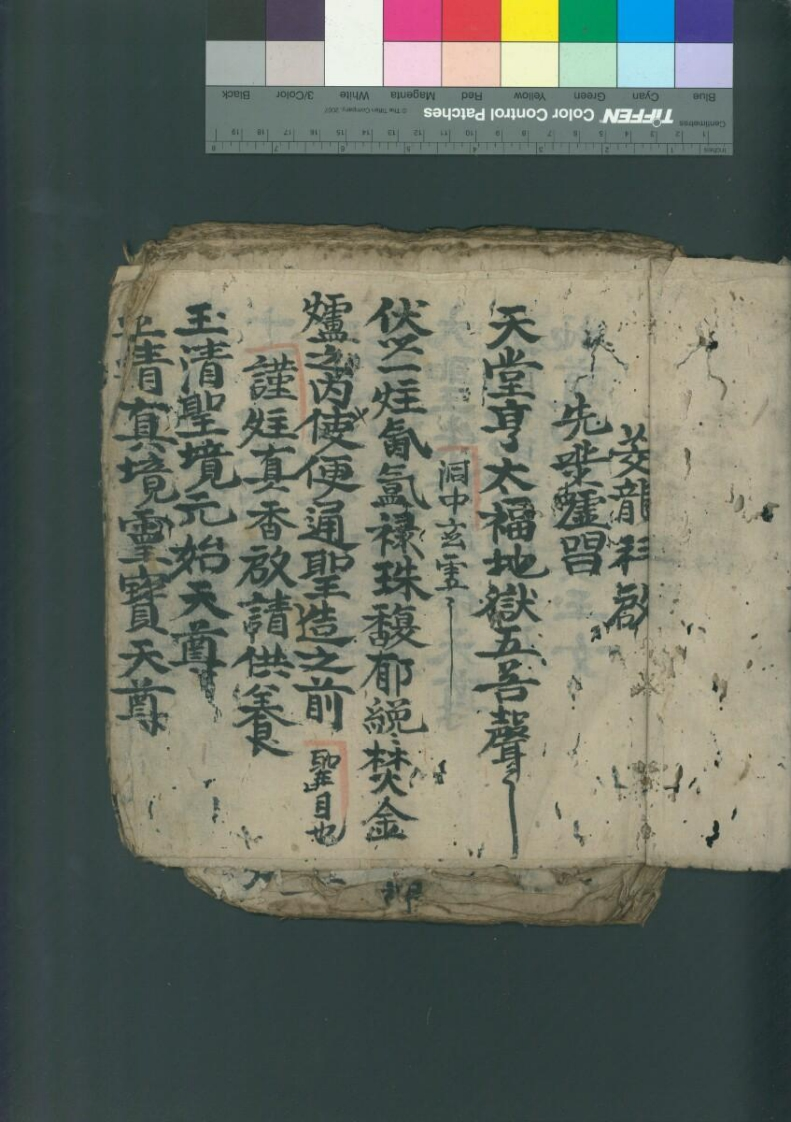 龍彩啟
先
天堂亨太福地獄五苦聲
洞中玄
伏以一炷氤氳祿珠馥郁焚金
爐之芮使便通聖造之前
聖目也
謹炷真香啟請供养
玉清聖境元始天尊
上清真境靈寶天尊
TIFFEN Color Control Patches
© The Tiffen Company, 2007
Blue Cyan Green Yellow Red Magenta White 3/Color Black
Centimetres
Inches